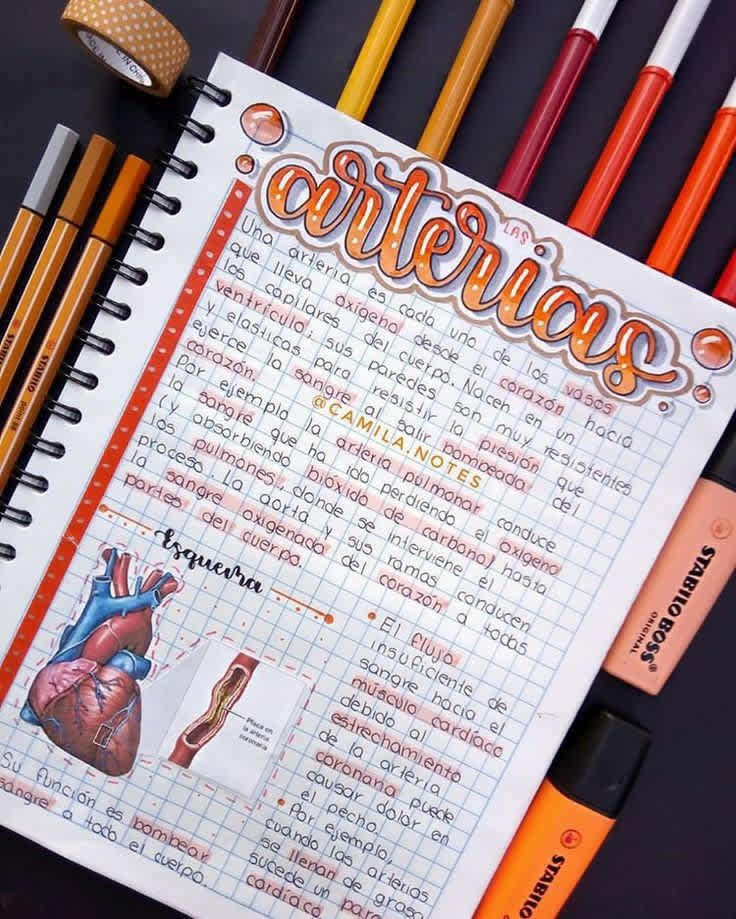 LAS
arterias
Una arteria es cada uno de los vasos
que lleva oxígeno desde el corazón hacia
los capilares del cuerpo. Nacen en un
ventrículo; sus paredes son muy resistentes
y elasticas para resistir la presión que
ejerce la sangre al salir bombeada del
corazón.
@CAMILA.NOTES
Por ejemplo la arteria pulmonar conduce
la sangre que ha ido perdiendo el oxigeno
(y absorbiendo bióxido de carbono) hasta
los pulmones, donde se interviene el
proceso. La aorta y sus ramas conducen
la sangre oxigenada del corazón a todas
partes del cuerpo.
Esquema
Placa en
la arteria
coronaria
Su función es bombear
sangre a todo el cuerpo.
• El flujo
insuficiente de
sangre hacia el
músculo cardíaco
debido al
estrechamiento
de la arteria
coronaria puede
causar dolor en
el pecho.
• Por ejemplo,
cuando las arterias
se llenan de grasa
sucede un paro
cardíaco
MADE IN CHINA
STABILO
STABILO
STABILO BOSS
ORIGINAL
STABILO